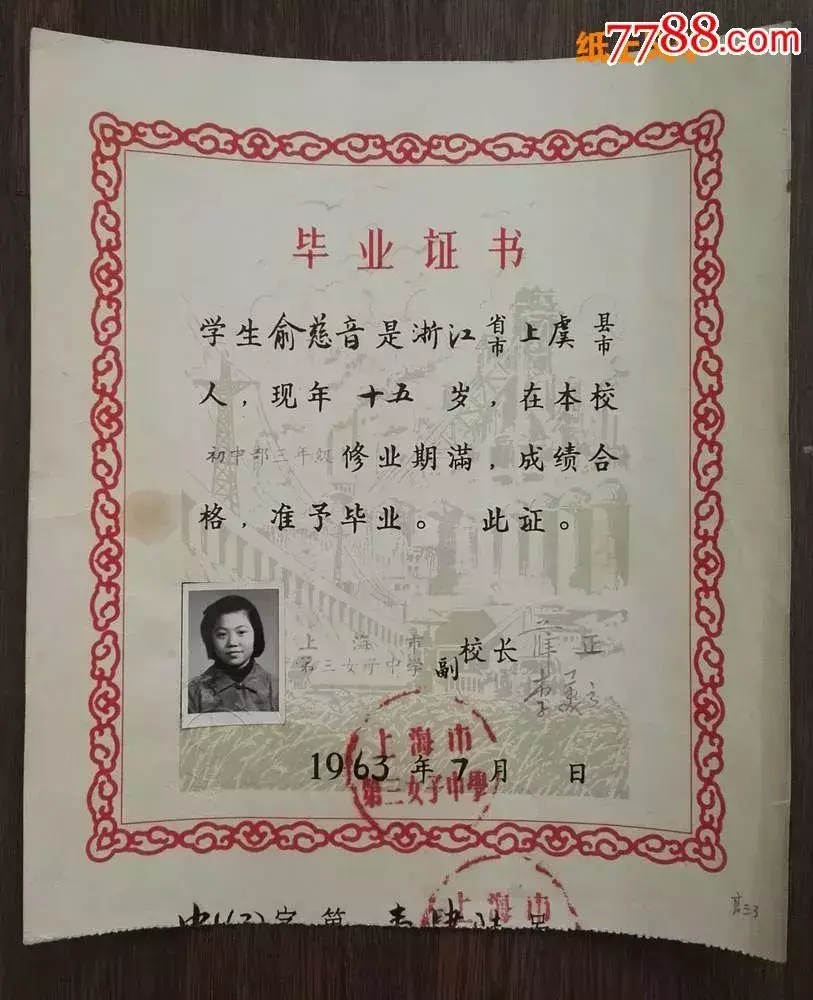 7788.com
毕业证书
学生俞慈音是浙江省市上虞县市
人，现年十五岁，在本校
初中部三年级修业期满，成绩合
格，准予毕业。此证。
上海市
第三女子中学
副校长 薛正
1963年7月 日
上海市
第三女子中學
上海市
高三3